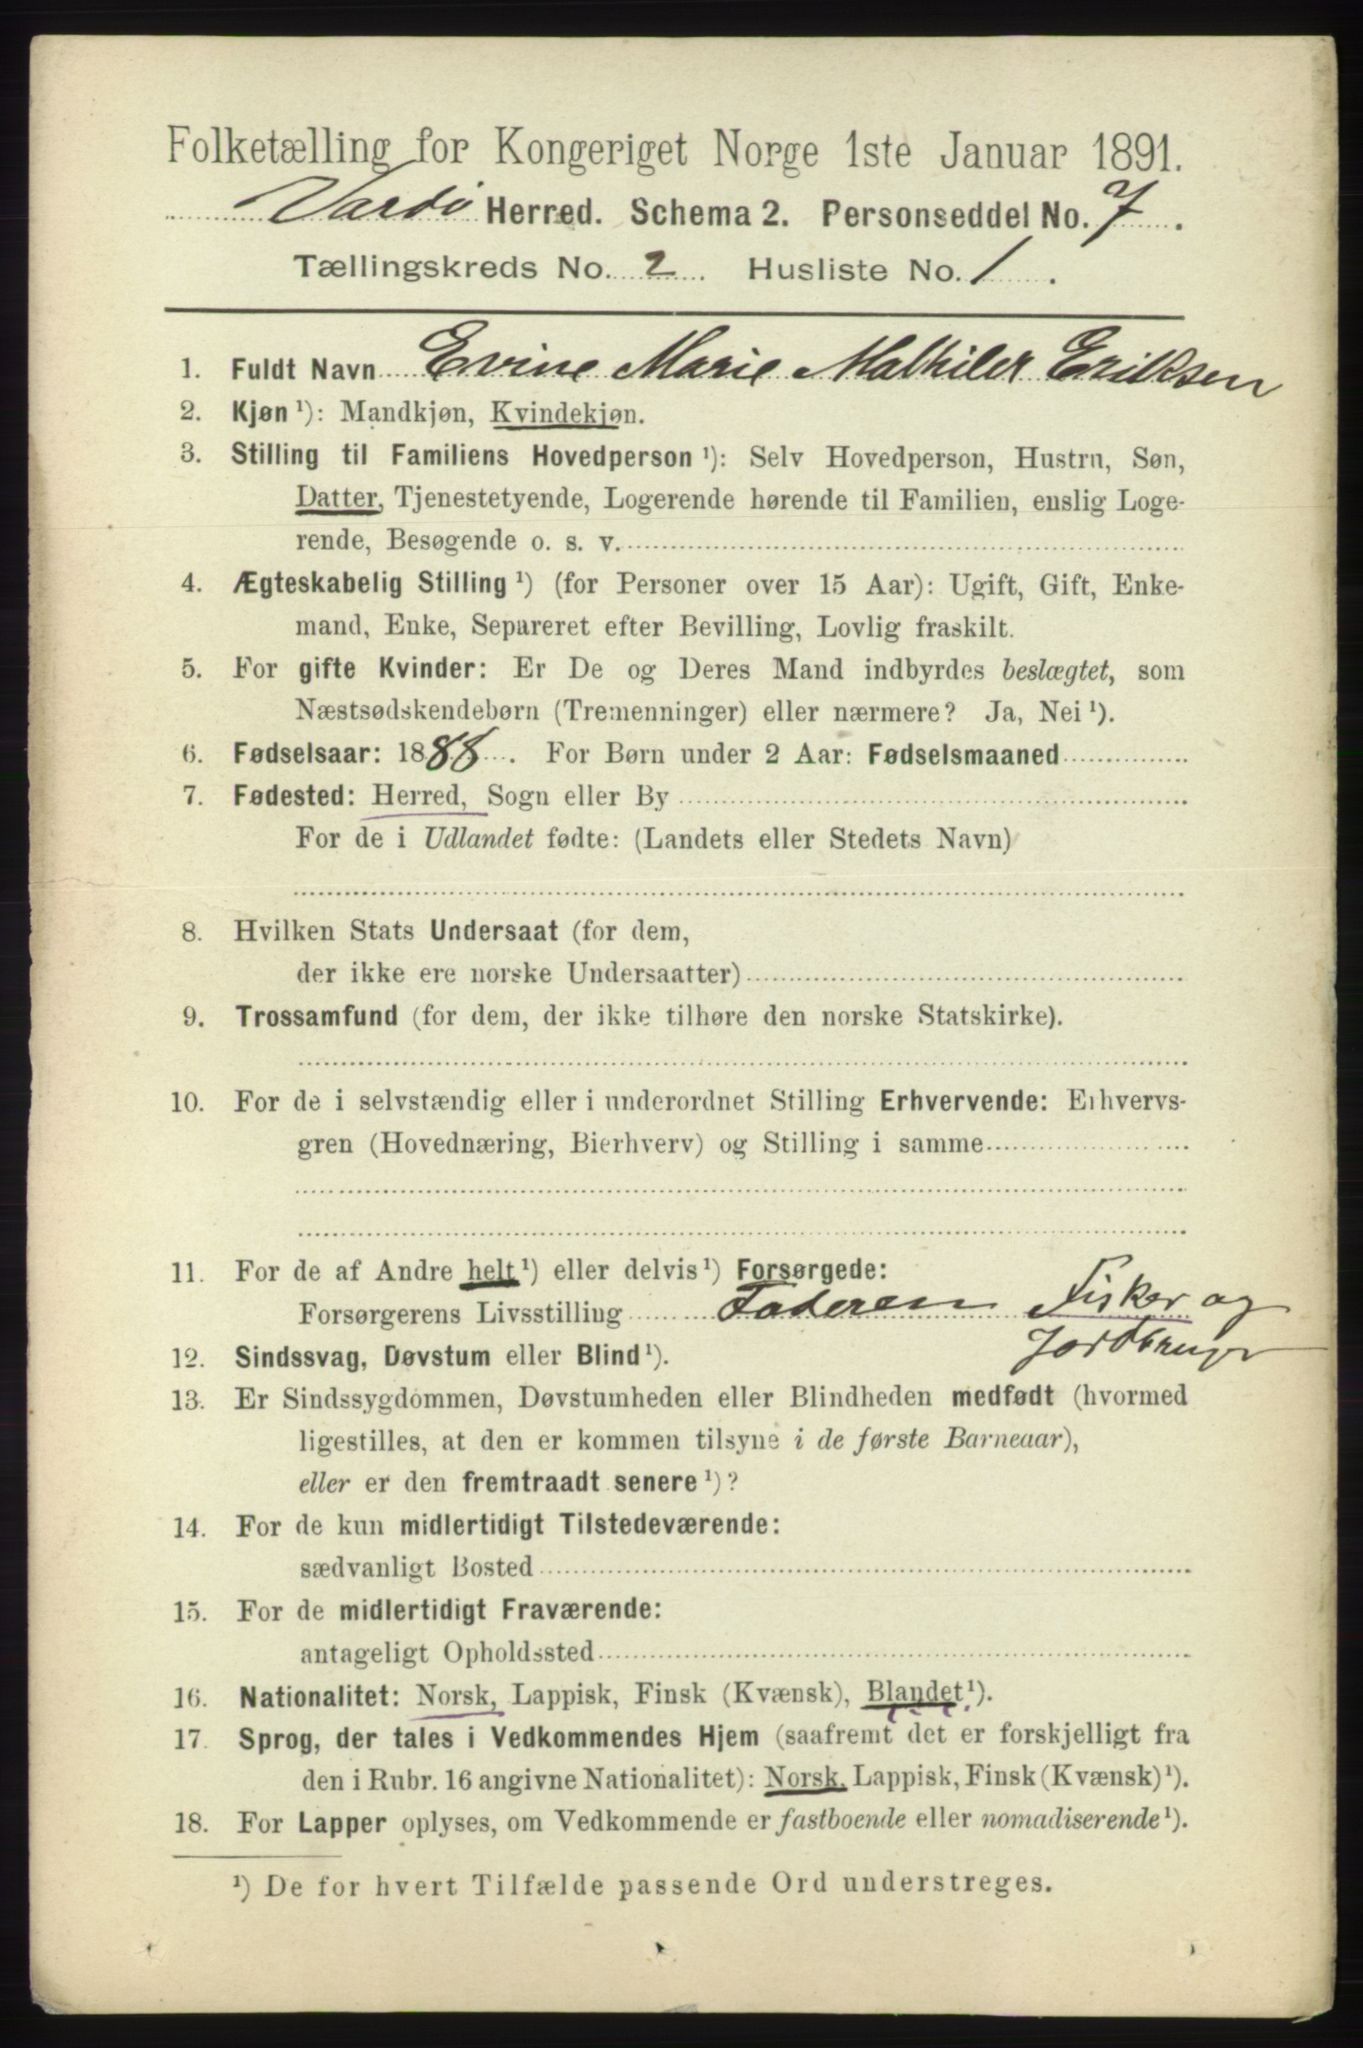 Folketælling for Kongeriget Norge 1ste Januar 1891.
Vardø Herred. Schema 2. Personseddel No. 7.
Tællingskreds No. 2 Husliste No. 1.
1. Fuldt Navn Evine Marie Mathilde Eriksen
2. Kjøn ¹): Mandkjøn, Kvindekjøn.
3. Stilling til Familiens Hovedperson ¹): Selv Hovedperson, Hustru, Søn,
Datter, Tjenestetyende, Logerende hørende til Familien, enslig Loge-
rende, Besøgende o. s. v.
4. Ægteskabelig Stilling ¹) (for Personer over 15 Aar): Ugift, Gift, Enke-
mand, Enke, Separeret efter Bevilling, Lovlig fraskilt.
5. For gifte Kvinder: Er De og Deres Mand indbyrdes beslægtet, som
Næstsødskendebørn (Tremenninger) eller nærmere? Ja, Nei ¹).
6. Fødselsaar: 1888. For Børn under 2 Aar: Fødselsmaaned
7. Fødested: Herred, Sogn eller By
For de i Udlandet fødte: (Landets eller Stedets Navn)
8. Hvilken Stats Undersaat (for dem,
der ikke ere norske Undersaatter)
9. Trossamfund (for dem, der ikke tilhøre den norske Statskirke).
10. For de i selvstændig eller i underordnet Stilling Erhvervende: Erhvervs-
gren (Hovednæring, Bierhverv) og Stilling i samme
11. For de af Andre helt ¹) eller delvis ¹) Forsørgede:
Forsørgerens Livsstilling Faderen Fisker og
Jordbruger
12. Sindssvag, Døvstum eller Blind ¹).
13. Er Sindssygdommen, Døvstumheden eller Blindheden medfødt (hvormed
ligestilles, at den er kommen tilsyne i de første Barneaar),
eller er den fremtraadt senere ¹)?
14. For de kun midlertidigt Tilstedeværende:
sædvanligt Bosted
15. For de midlertidigt Fraværende:
antageligt Opholdssted
16. Nationalitet: Norsk, Lappisk, Finsk (Kvænsk), Blandet ¹).
17. Sprog, der tales i Vedkommendes Hjem (saafremt det er forskjelligt fra
den i Rubr. 16 angivne Nationalitet): Norsk, Lappisk, Finsk (Kvænsk) ¹).
18. For Lapper oplyses, om Vedkommende er fastboende eller nomadiserende ¹).
¹) De for hvert Tilfælde passende Ord understreges.